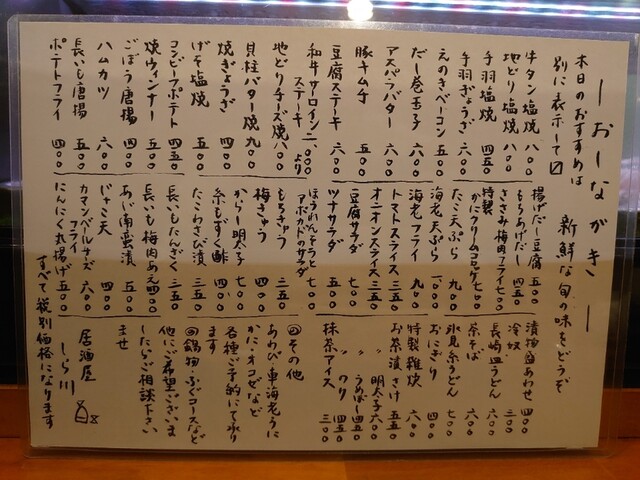 ーおーしーながきー
新鮮な旬の味をどうぞ
本日のおすすめは
別に表示して〼
牛タン塩焼 八〇〇
地どり塩焼 八〇〇
手羽塩焼 四五〇
手羽ぎょうざ 六〇〇
えのきベーコン 五五〇
だし巻玉子 六〇〇
アスパラバター 六〇〇
豚キムチ 五〇〇
豆腐ステーキ 六〇〇
和牛サーロイン
ステーキ 二、〇〇〇より
地どりチーズ焼 八〇〇
貝柱バター焼 九〇〇
焼ぎょうざ 四〇〇
げそ塩焼 五〇〇
コンビーフポテト 四五〇
焼ウィンナー 五〇〇
ごぼう唐揚 四五〇
ハムカツ 六〇〇
長いも唐揚 五〇〇
ポテトフライ 四〇〇
揚げだし豆腐 五〇〇
もちあげだし 四五〇
ささみ梅肉フライ 七〇〇
特製
かにクリームコロッケ 七〇〇
たこ天ぷら 九〇〇
海老天ぷら 一、〇〇〇
海老フライ 九〇〇
トマトスライス 三五〇
オニオンスライス 三五〇
豆腐サラダ 七〇〇
ツナサラダ 六〇〇
ほうれんそうと
アボカドのサラダ 七〇〇
もろきゅう 三五〇
梅きゅう 四〇〇
からし明太子 七〇〇
糸もずく酢 四〇〇
たこわさび漬 三五〇
長いもたんざく 三五〇
長いも梅肉あえ 四〇〇
あじ南蛮漬 五〇〇
じゃこ天 四〇〇
カマンベールチーズ
フライ 六〇〇
にんにく丸揚げ 五〇〇
漬物盛あわせ 四〇〇
冷奴 三〇〇
長崎皿うどん 七〇〇
茶そば 六〇〇
氷見糸うどん 七〇〇
おにぎり 四〇〇
特製雑炊 六〇〇
お茶漬 さけ 五五〇
〃 明太子 六〇〇
〃 うめぼし 四五〇
〃 のり 四五〇
抹茶アイス 三〇〇
回その他
あわび・車海老・うに
かに・オコゼなど
各種ご予約にて承り
ます
回鍋物・ふぐコースなど
他にご希望ございま
したらご相談下さい
ませ
居酒屋
しら川
すべて税別価格になります